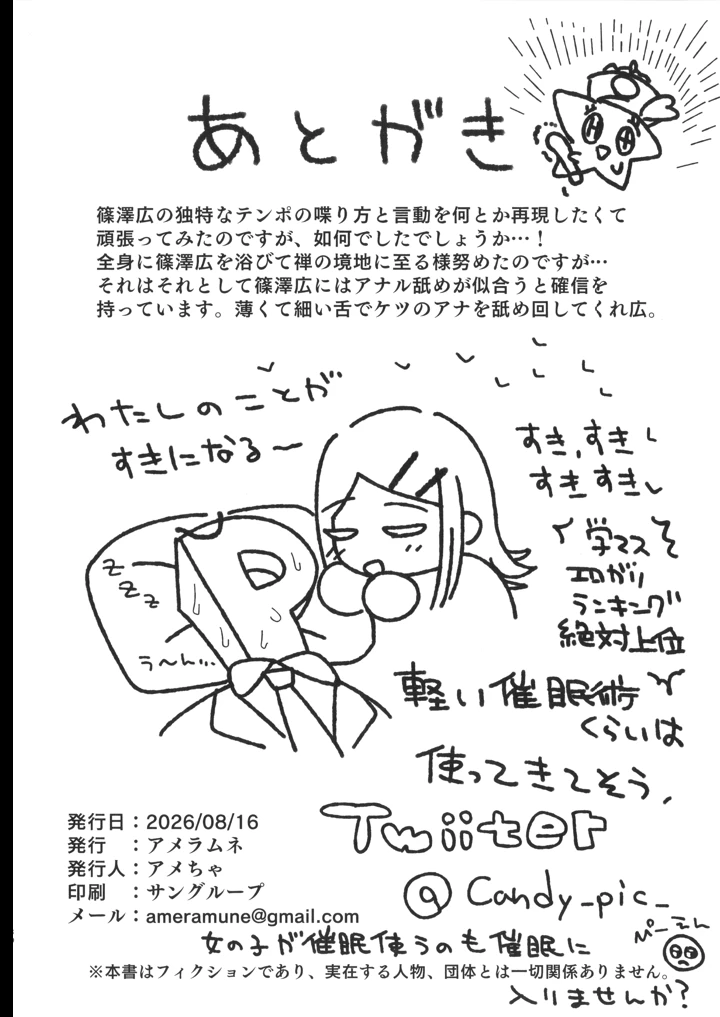 あとがき
篠澤広の独特なテンポの喋り方と言動を何とか再現したくて
頑張ってみたのですが、如何でしたでしょうか…！
全身に篠澤広を浴びて禅の境地に至る様努めたのですが…
それはそれとして篠澤広にはアナル舐めが似合うと確信を
持っています。薄くて細い舌でケツのアナを舐め回してくれ広。
わたしのことが
すきになる〜
すき、すき
すき すき
学マス
エロガリ
ランキング
絶対上位
z
z
z
う〜ん…
P
軽い催眠術
くらいは
使ってきてそう、
発行日：2026/08/16
発行　：アメラムネ
発行人：アメちゃ
印刷　：サングループ
メール：ameramune@gmail.com
Twiiter
@Candy_pic_
女の子が催眠使うのも催眠に
入りませんか？
ぴーえん
※本書はフィクションであり、実在する人物、団体とは一切関係ありません。